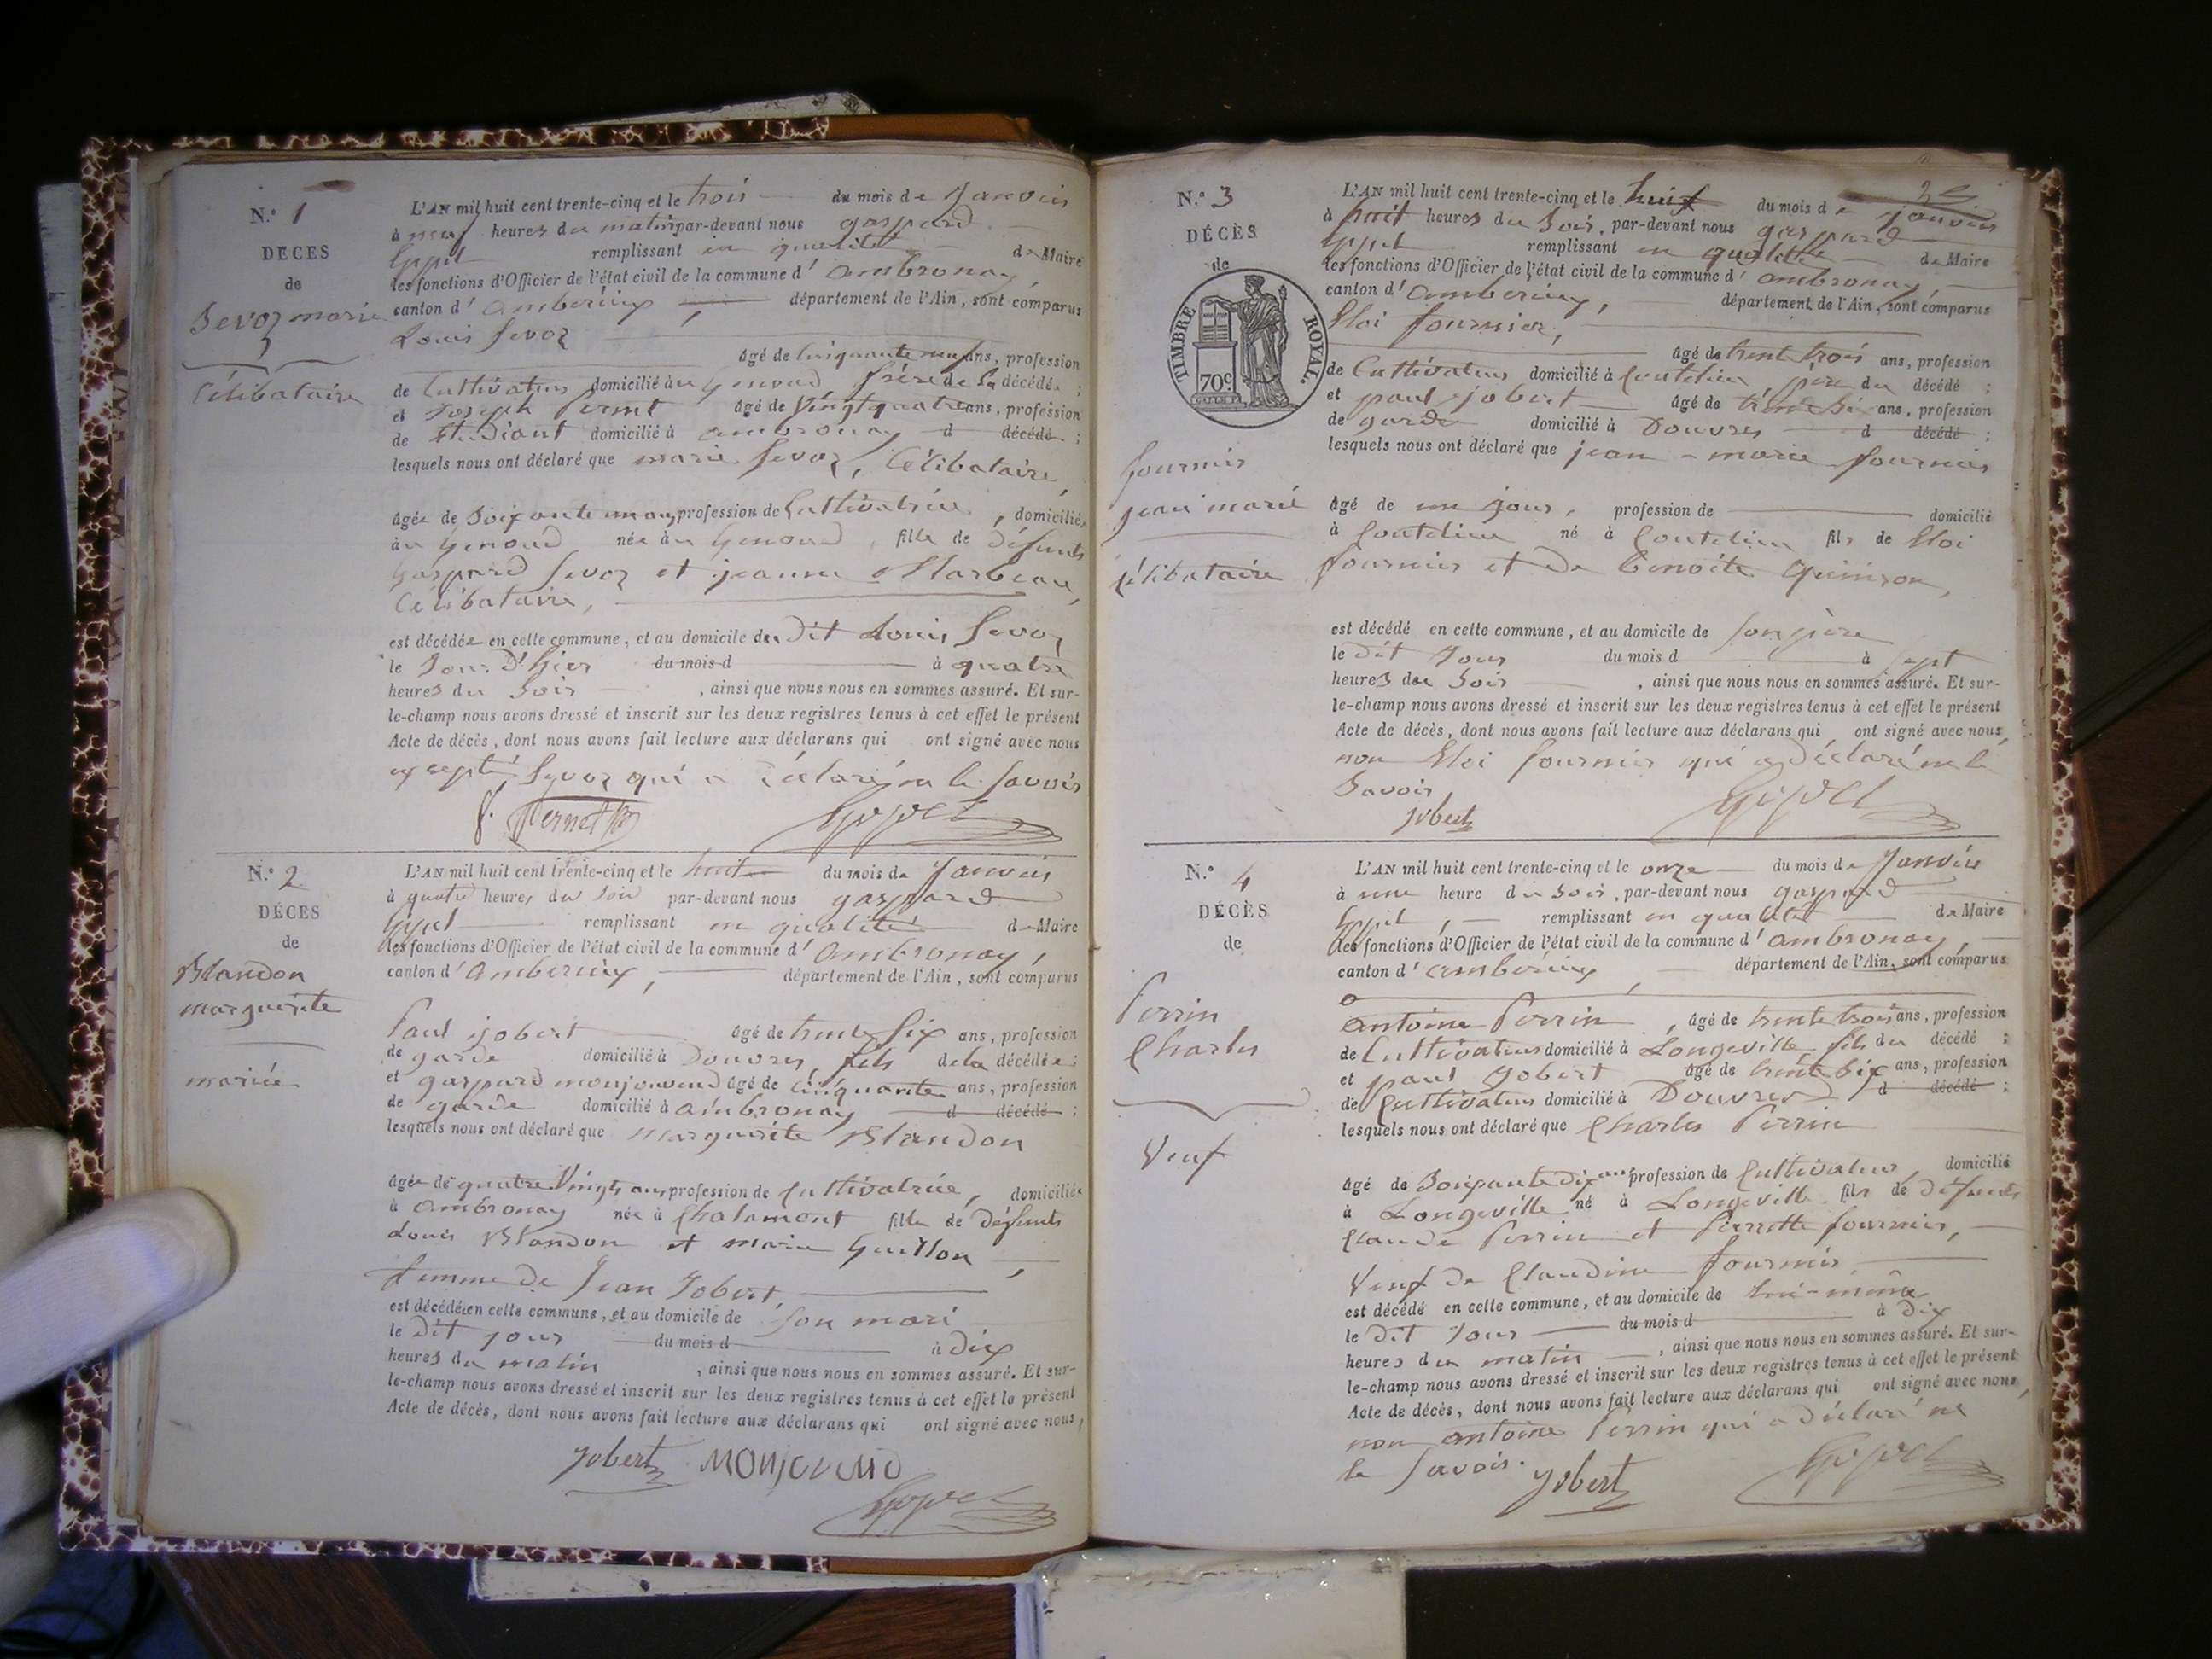 N.º 1
DÉCES
de
Sevoz marie
Célibataire
L'AN mil huit cent trente-cinq et le trois du mois de Janvier
à neuf heures du matin par-devant nous gaspard
remplissant en qualité de Maire
les fonctions d'Officier de l'état civil de la commune d'ambronay,
canton d'amberieux, département de l'Ain, sont comparus
Louis Sevoz
âgé de Cinquante neuf ans, profession
de Cultivateur domicilié au genoud, frère de la décédée ;
et Joseph âgé de Vingt quatre ans, profession
de Etudiant domicilié à ambronay d décédé ;
lesquels nous ont déclaré que marie Sevoz, Célibataire,
âgée de Soixante un ans, profession de Cultivatrice, domiciliée
au genoud née au genoud, fille de défunts
gaspard Sevoz et jeanne
Célibataire,
est décédée en cette commune, et au domicile du Dit Louis Sevoz
le Jour d'hier du mois d à quatre
heures du Soir, ainsi que nous nous en sommes assuré. Et sur-
le-champ nous avons dressé et inscrit sur les deux registres tenus à cet effet le présent
Acte de décès, dont nous avons fait lecture aux déclarans qui ont signé avec nous
excepté Sevoz qui a déclaré ne le Savoir
N.º 2
DÉCES
de
Blandon
marguerite
mariée
L'AN mil huit cent trente-cinq et le huit du mois de Janvier
à quatre heures du Soir par-devant nous gaspard
remplissant en qualité de Maire
les fonctions d'Officier de l'état civil de la commune d'ambronay,
canton d'amberieux, département de l'Ain, sont comparus
Paul jobert âgé de trente Six ans, profession
de garde domicilié à Douvres, fils de la décédée ;
et gaspard monjouvend âgé de Cinquante ans, profession
de garde domicilié à ambronay d décédé ;
lesquels nous ont déclaré que marguerite Blandon
âgée de quatre Vingts ans profession de Cultivatrice, domiciliée
à ambronay née à Chalamont fille de Défunts
Louis Blandon et marie Guillon,
femme de Jean Jobert,
est décédée en cette commune, et au domicile de Son mari
le Dit jour du mois d à Dix
heures du matin, ainsi que nous nous en sommes assuré. Et sur-
le-champ nous avons dressé et inscrit sur les deux registres tenus à cet effet le présent
Acte de décès, dont nous avons fait lecture aux déclarans qui ont signé avec nous,
Jobert
N.º 3
DÉCÈS
de
TIMBRE ROYAL.
70c.
fournier
jean marie
Célibataire
L'AN mil huit cent trente-cinq et le huit du mois de janvier
à huit heures du Soir, par-devant nous gaspard
remplissant en qualité de Maire
les fonctions d'Officier de l'état civil de la commune d'ambronay,
canton d'amberieux, département de l'Ain, sont comparus
Eloi fournier,
âgé de trente trois ans, profession
de Cultivateur domicilié à Coutelieu, père du décédé ;
et paul jobert âgé de trente Six ans, profession
de garde domicilié à Douvres d décédé ;
lesquels nous ont déclaré que jean-marie fournier
âgé de un jour, profession de domicilié
à Coutelieu né à Coutelieu fils de Eloi
fournier et de benoite Quinson,
est décédé en cette commune, et au domicile de Son père
le dit Jour du mois d à Sept
heures du Soir, ainsi que nous nous en sommes assuré. Et sur-
le-champ nous avons dressé et inscrit sur les deux registres tenus à cet effet le présent
Acte de décès, dont nous avons fait lecture aux déclarans qui ont signé avec nous,
non Eloi fournier qui a déclaré ne le
Savoir
Jobert
N.º 4
DÉCÈS
de
Perrin
Charles
Veuf
L'AN mil huit cent trente-cinq et le onze du mois de Janvier
à une heure du Soir, par-devant nous gaspard
remplissant en qualité de Maire
les fonctions d'Officier de l'état civil de la commune d'ambronay,
canton d'amberieux, département de l'Ain, sont comparus
antoine Perrin, âgé de trente trois ans, profession
de Cultivateur domicilié à Longeville fils du décédé ;
et paul Jobert âgé de trente Six ans, profession
de Cultivateur domicilié à Douvres d décédé ;
lesquels nous ont déclaré que Charles Perrin
âgé de Soixante Dix ans profession de Cultivateur, domicilié
à Longeville né à Longeville fils de défunts
Claude Perrin et Pierrette fournier,
Veuf de Claudine fournier
est décédé en cette commune, et au domicile de lui-même
le Dit Jour du mois d à Dix
heures du matin, ainsi que nous nous en sommes assuré. Et sur-
le-champ nous avons dressé et inscrit sur les deux registres tenus à cet effet le présent
Acte de décès, dont nous avons fait lecture aux déclarans qui ont signé avec nous,
non antoine Perrin qui a déclaré ne
le Savoir.
Jobert